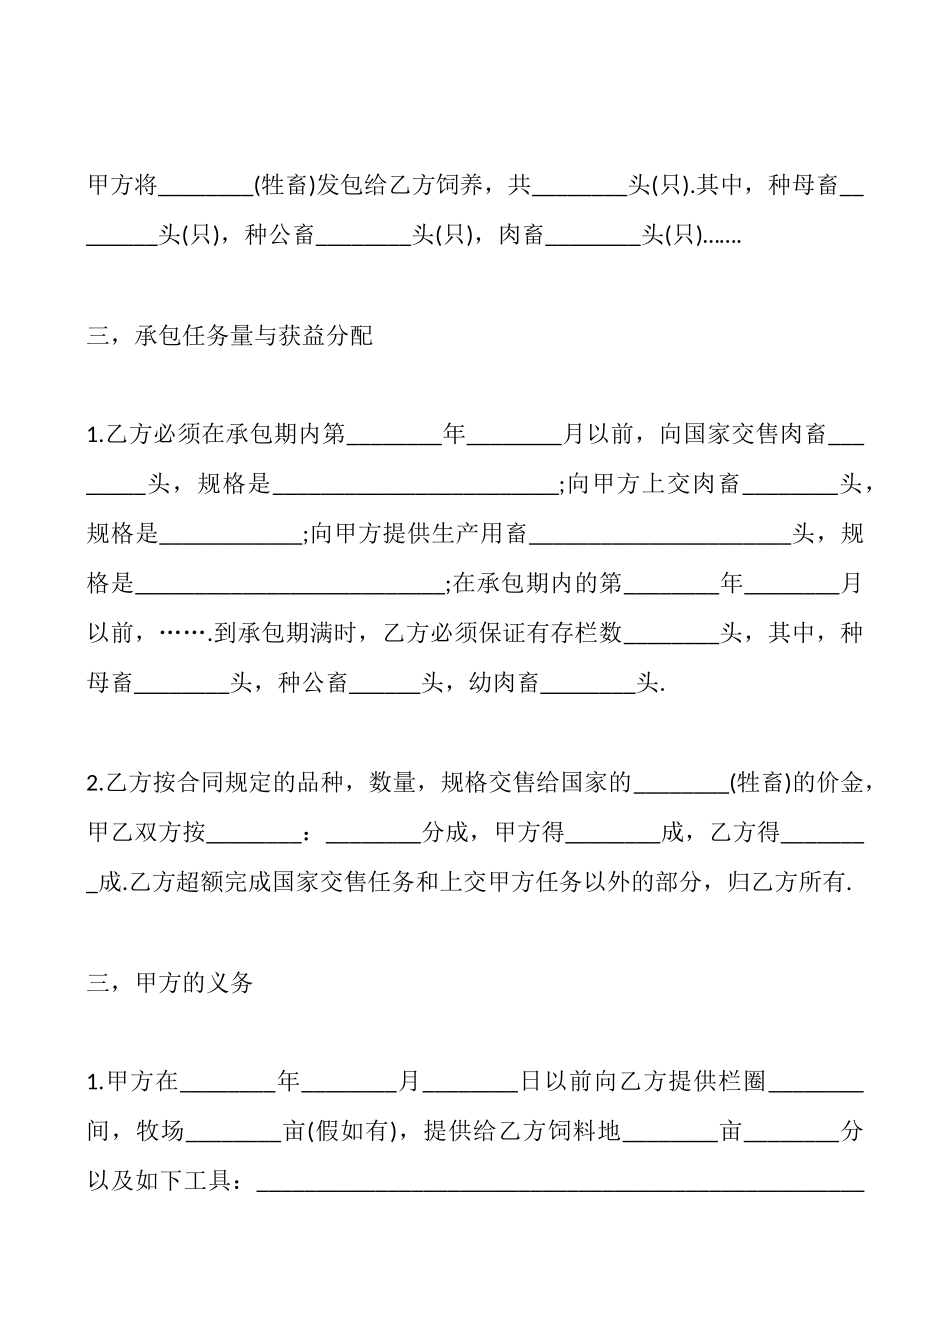 甲方将________(牲畜)发包给乙方饲养，共________头(只).其中，种母畜__
______头(只)，种公畜________头(只)，肉畜________头(只).……
三，承包任务量与获益分配
1.乙方必须在承包期内第________年________月以前，向国家交售肉畜___
_____头，规格是________________________;向甲方上交肉畜________头，
规格是____________;向甲方提供生产用畜______________________头，规
格是__________________________;在承包期内的第________年________月
以前，…….到承包期满时，乙方必须保证有存栏数________头，其中，种
母畜________头，种公畜______头，幼肉畜________头.
2.乙方按合同规定的品种，数量，规格交售给国家的________(牲畜)的价金，
甲乙双方按________：________分成，甲方得________成，乙方得_______
_成.乙方超额完成国家交售任务和上交甲方任务以外的部分，归乙方所有.
三，甲方的义务
1.甲方在________年________月________日以前向乙方提供栏圈________
间，牧场________亩(假如有)，提供给乙方饲料地________亩________分
以及如下工具：___________________________________________________